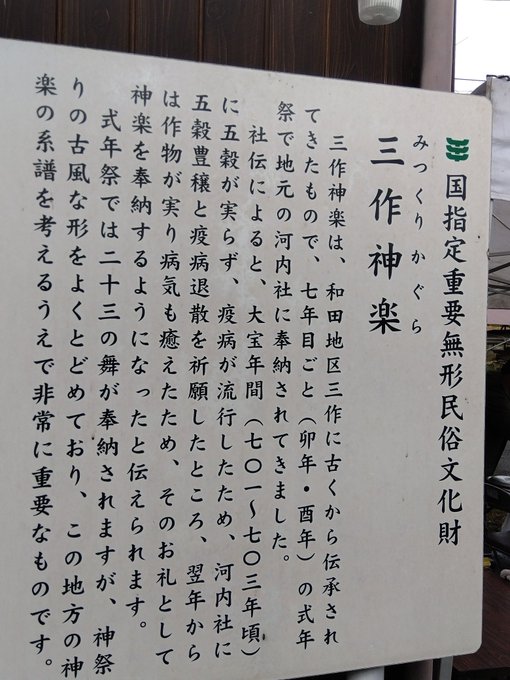 国指定重要無形民俗文化財
みつくりかぐら
三作神楽
三作神楽は、和田地区三作に古くから伝承され
てきたもので、七年目ごと（卯年・酉年）の式年
祭で地元の河内社に奉納されてきました。
社伝によると、大宝年間（七〇一〜七〇三年頃）
に五穀が実らず、疫病が流行したため、河内社に
五穀豊穣と疫病退散を祈願したところ、翌年から
は作物が実り病気も癒えたため、そのお礼として
神楽を奉納するようになったと伝えられます。
式年祭では二十三の舞が奉納されますが、神祭
りの古風な形をよくとどめており、この地方の神
楽の系譜を考えるうえで非常に重要なものです。